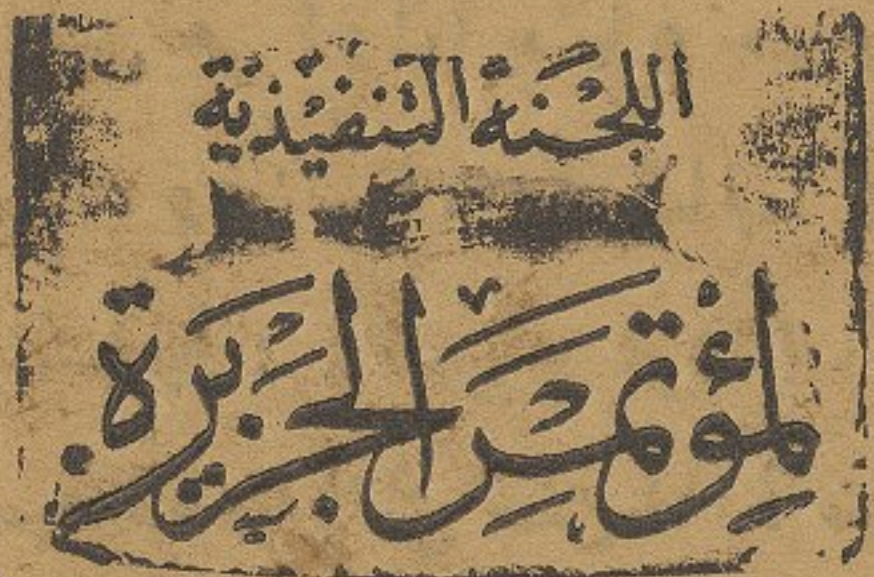 اللجنة التنفيذية
لمؤتمر الجزيرة